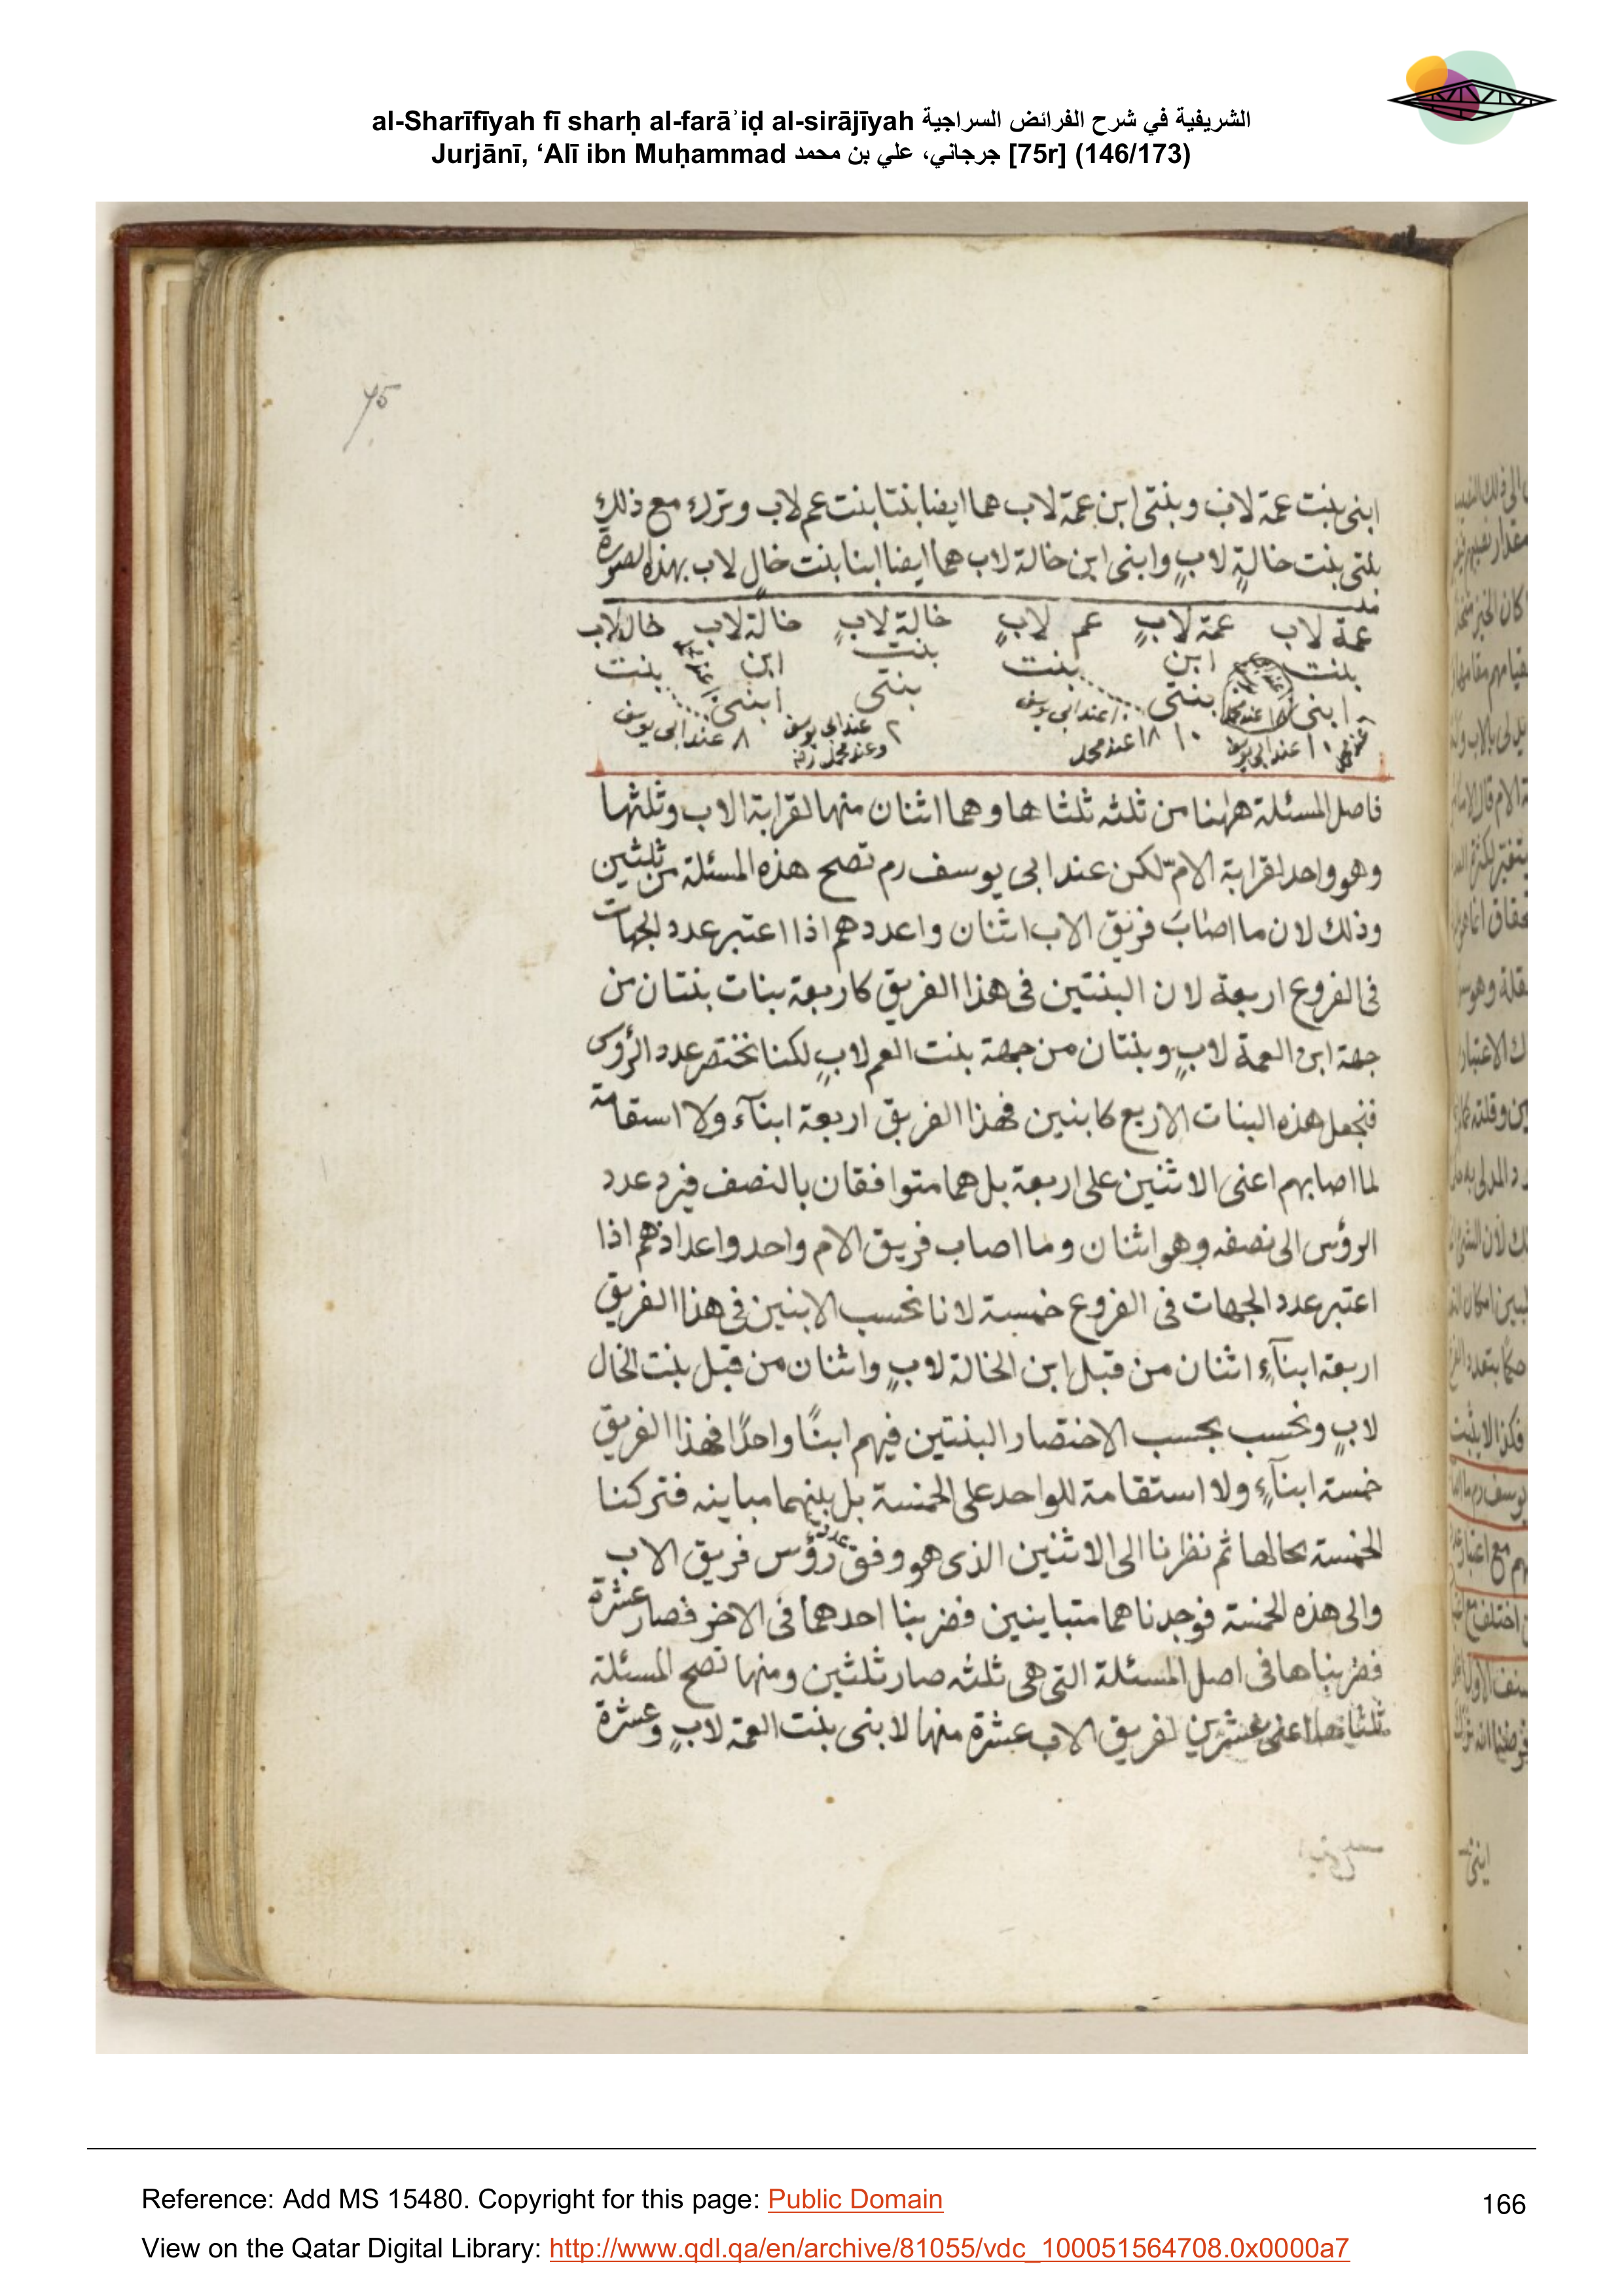 al-Sharīfīyah fī sharḥ al-farāʾiḍ al-sirājīyah الشريفية في شرح الفرائض السراجية
Jurjānī, ‘Alī ibn Muḥammad جرجاني، علي بن محمد [75r] (146/173)
75
ابنى بنت عمة لاب وبنتى ابن عمة لاب هما ايضا بنتا بنت عم لاب وترك مع ذلك
بنتى بنت خالةٍ لابٍ وابنى ابن خالة لاب هما ايضا ابنا بنت خالٍ لاب بهذه الصورة
عمة لاب عمة لابٍ عم لابٍ خالة لابٍ خالة لاب خال لاب
بنت ابن بنت بنت ابن بنت
ابنى بنتى بنتى ابنى
١٠ عند ابى يوسف ١٨ عند محمد ١٠ عند ابى يوسف ٢ عند ابى يوسف وعند محمد ٨ عند ابى يوسف
فاصل المسئلة ههنا من ثلثه ثلثاها وهما اثنان منها لقرابة الاب وثلثها
وهو واحد لقرابة الامّ لكن عند ابى يوسف رم تصح هذه المسئلة من ثلثين
وذلك لان ما اصاب فريق الاب اثنان واعددهم اذا اعتبر عدد الجهات
فى الفروع اربعة لان البنتين فى هذا الفريق كاربعة بنات بنتان من
جهة ابن العمة لابٍ وبنتان من جهة بنت العم لابٍ لكنا نختصر عدد الرؤس
فنجعل هذه البنات الاربع كابنين فهذا الفريق اربعة ابنآء ولا استقامة
لما اصابهم اعنى الاثنين على اربعة بل هما متوافقان بالنصف فيرد عدد
الرؤس الى نصفه وهو اثنان وما اصاب فريق الام واحد واعدادهم اذا
اعتبر عدد الجهات فى الفروع خمسة لانا نحسب الابنين فى هذا الفريق
اربعة ابنآءٍ اثنان من قبل ابن الخالة لابٍ واثنان من قبل بنت الخال
لابٍ ونحسب بحسب الاختصار البنتين فيهم ابنًا واحدًا فهذا الفريق
خمسة ابنآءٍ ولا استقامة للواحد على الخمسة بل بينهما مباينه فتركنا
الخمسة بحالها ثم نظرنا الى الاثنين الذى هو وفق عدد رؤس فريق الاب
والى هذه الخمسة فوجدناهما متباينين فضربنا احدهما فى الاخر فصار عشرة
فضربناها فى اصل المسئلة التى هى ثلثه صار ثلثين ومنها تصح المسئلة
ثلثاها اعنى عشرين لفريق الاب عشرة منها لابنى بنت العمة لابٍ وعشرة
Reference: Add MS 15480. Copyright for this page: Public Domain
166
View on the Qatar Digital Library: http://www.qdl.qa/en/archive/81055/vdc_100051564708.0x0000a7